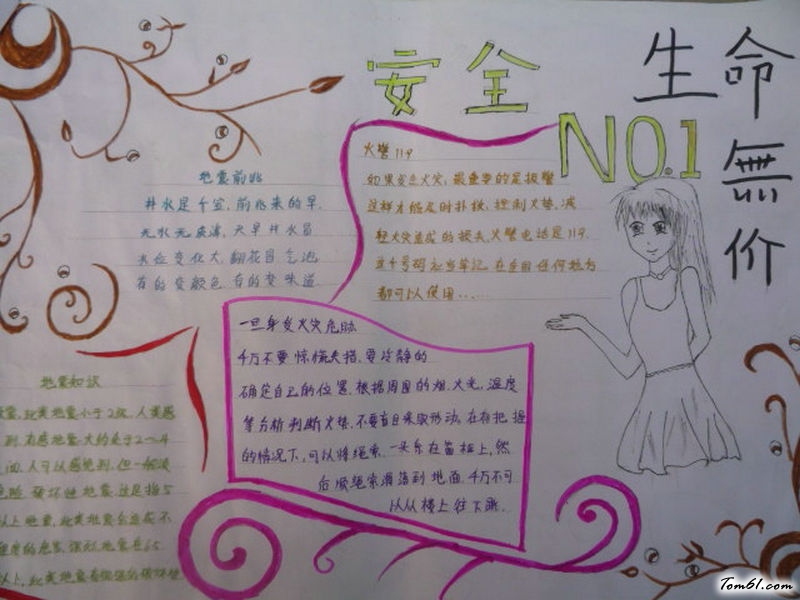 安全
NO.1
生命
無
价
地震前兆
井水是个宝，前兆来的早，
无水无来浑，天旱井水冒
水位变化大，翻花冒气泡
有的变颜色，有的变味道
火警119
如果发生火灾，最重要的是报警
这样才能及时扑救，控制火势，减
轻火灾造成的损失，火警电话是119.
这个号码应当牢记，在全国任何地方
都可以使用......
一旦身受火灾危胁
4万不要惊慌失措，要冷静的
确定自己的位置，根据周围的烟、火光，温度
等分析判断火势，不要盲目采取形动，在有把握
的情况下，可以将绳索，一头系在窗框上，然
后顺绳索滑落到地面，4万不可
以从楼上往下跳.
地震知识
震，此类地震小于2级，人类感
到，有感地震，大约是于2～4
面，人可以感觉到，但一般没
危险，破坏性地震，这是指5
以上地震，此类地震会造成不
程度的危害，强烈地震在6.5
以上，此类地震有很强的破坏性
Tom61.com